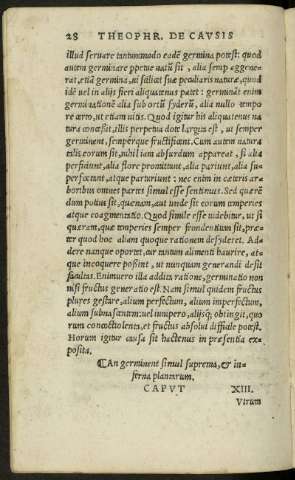 28 THEOPHR. DE CAVSIS
illud seruare tantummodo eadē germina potest: quod
autem germinare ppetue natū sit, alia semp aggene
rat, etiā germina, ut scilicet suæ peculiaris naturæ, quod
idē uel in alijs fieri aliquatenus patet: germināt enim
germinationē alia sub ortū syderū, alia nullo tempo
re certo, ut etiam uitis. Quod igitur his aliquatenus na
tura concessit, illis perpetua dote largita est, ut semper
germinent, semperque fructificent. Cum autem natura
talis eorum sit, nihil iam absurdum appareat, si alia
perficiunt, alia flore promittunt, alia pariunt, alia su-
perfoetent, atque parturiunt: nec enim in cæteris ar
boribus omnes partes simul esse sentimus. Sed quærē
dum potius sit, quænam, aut unde sit eorum temperies
atque coagmentatio. Quod simile esse uidebitur, ut si
quæram, quæ temperies semper frondentium sit, præ
ter quod hoc aliam quoque rationem desyderet. Ad
dere nanque oportet, aut tantum alimenti haurire, at
que incoquere possint, ut nunquam generandi desit
facultas. Enimuero illa addita ratione, germinatio non
nisi fructus generatio est. Nam simul quidem fructus
plures gestare, alium perfectum, alium imperfectum,
alium subnascentem: uel iunipero, alijsque obtingit, quo
rum concoctio lenes, et fructus absolui difficile potest.
Horum igitur causa sit hactenus in præsentia ex-
posita.
¶An germinent simul suprema, & in
ferna plantarum.
CAPVT XIII.
Virum